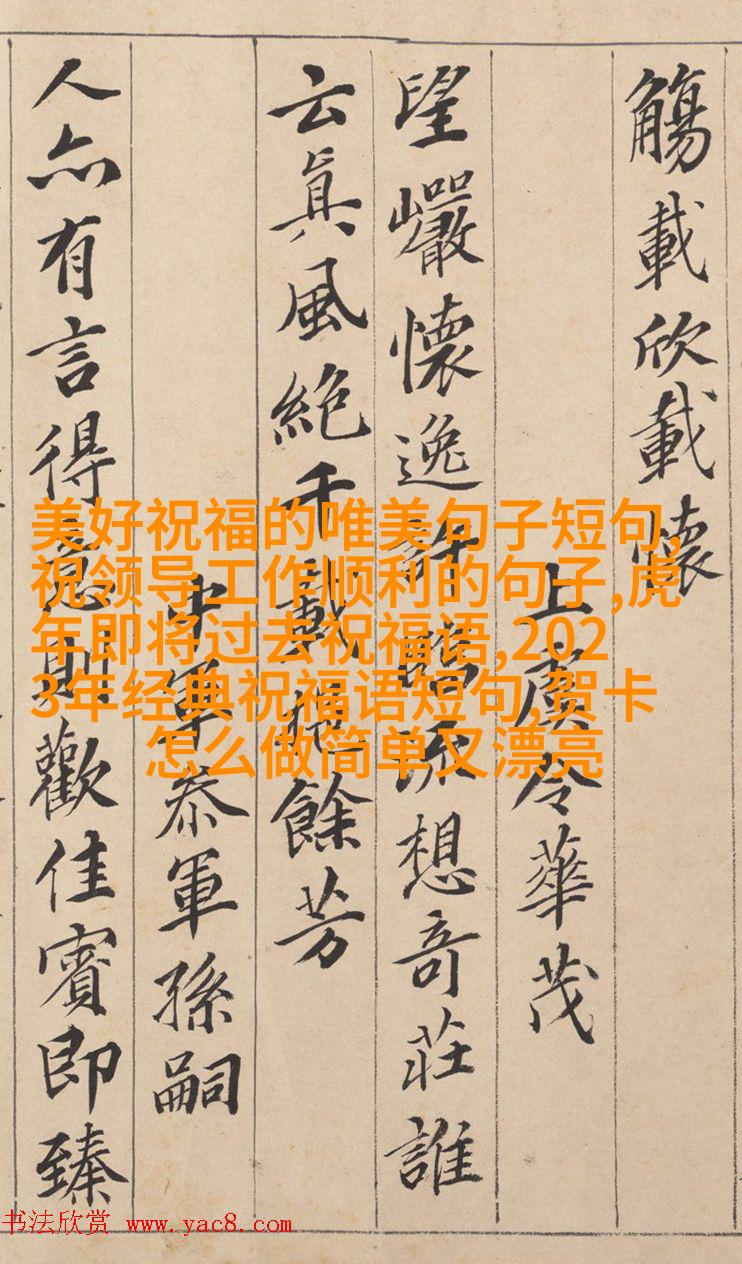 觴載欣載懷
上虞令華茂
望巗懷逸許臨流想奇莊誰
云真風絕千載挹餘芳
中軍叅軍孫嗣
人亦有言得意則歡佳賓即臻
美好祝福的唯美句子短句,
祝领导工作顺利的句子,虎
年即将过去祝福语,202
3年经典祝福语短句,贺卡
怎么做简单又漂亮
书法欣赏 www.yac8.com